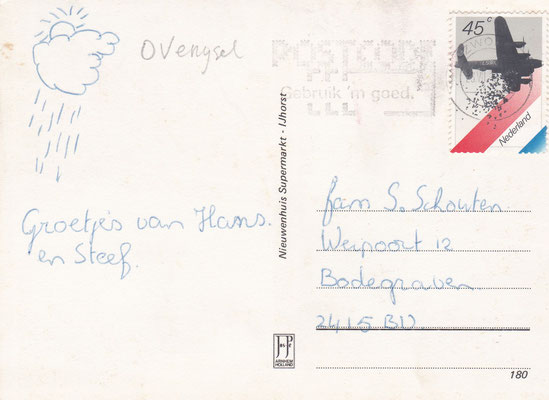 Ovenysel
POSTCODE
Gebruik 'm goed.
45 c
Nederland
Groetjes van Hans.
en Steef.
Nieuwenhuis Supermarkt - IJhorst
fam S. Schouten.
Weipoort 12
Bodegraven.
2415 BV.
JosPé
ARNHEM
HOLLAND
180